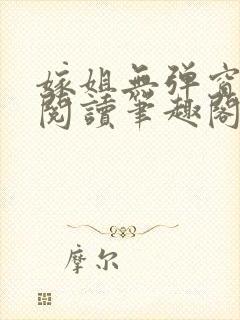 嫁姐無弹窗
閱讀筆趣閣
摩尔